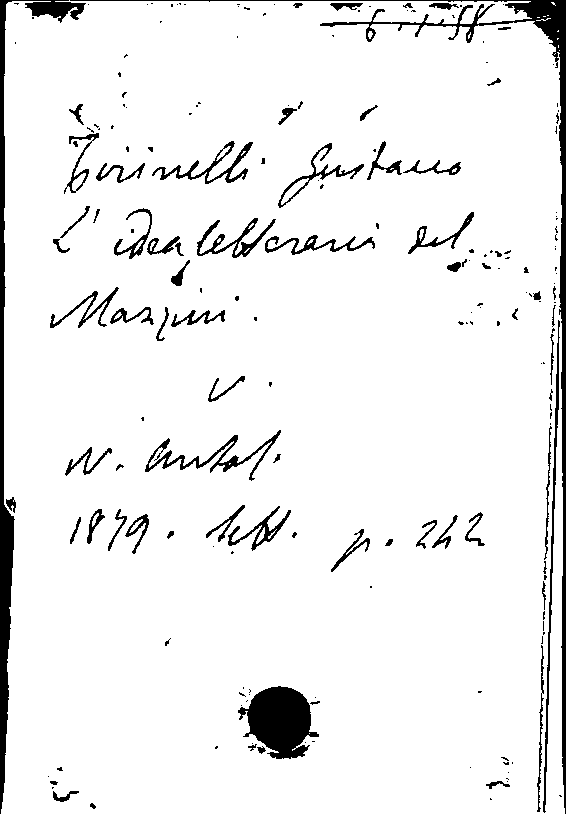 6.1.58
Torinelli Gustavo
L'idea letteraria del
Mazzini.
v.
N. Antol.
1879. Sett. p. 242